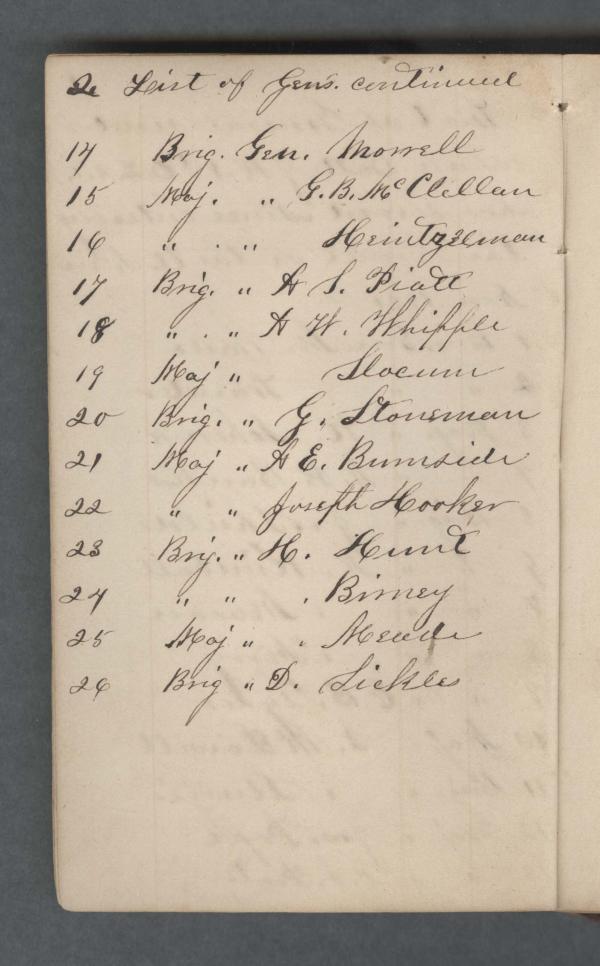 2 List of Gens. continued
14 Brig. Gen. Morrell
15 Maj. " G. B. McClellan
16 " . " Heintzelman
17 Brig. " A S. Piatt
18 " . " A W. Whipple
19 Maj " Slocum
20 Brig. " G. Stoneman
21 Maj " A E. Burnside
22 " " Joseph Hooker
23 Brig. " H. Hunt
24 " " . Birney
25 Maj " . Meade
26 Brig " D. Sickles